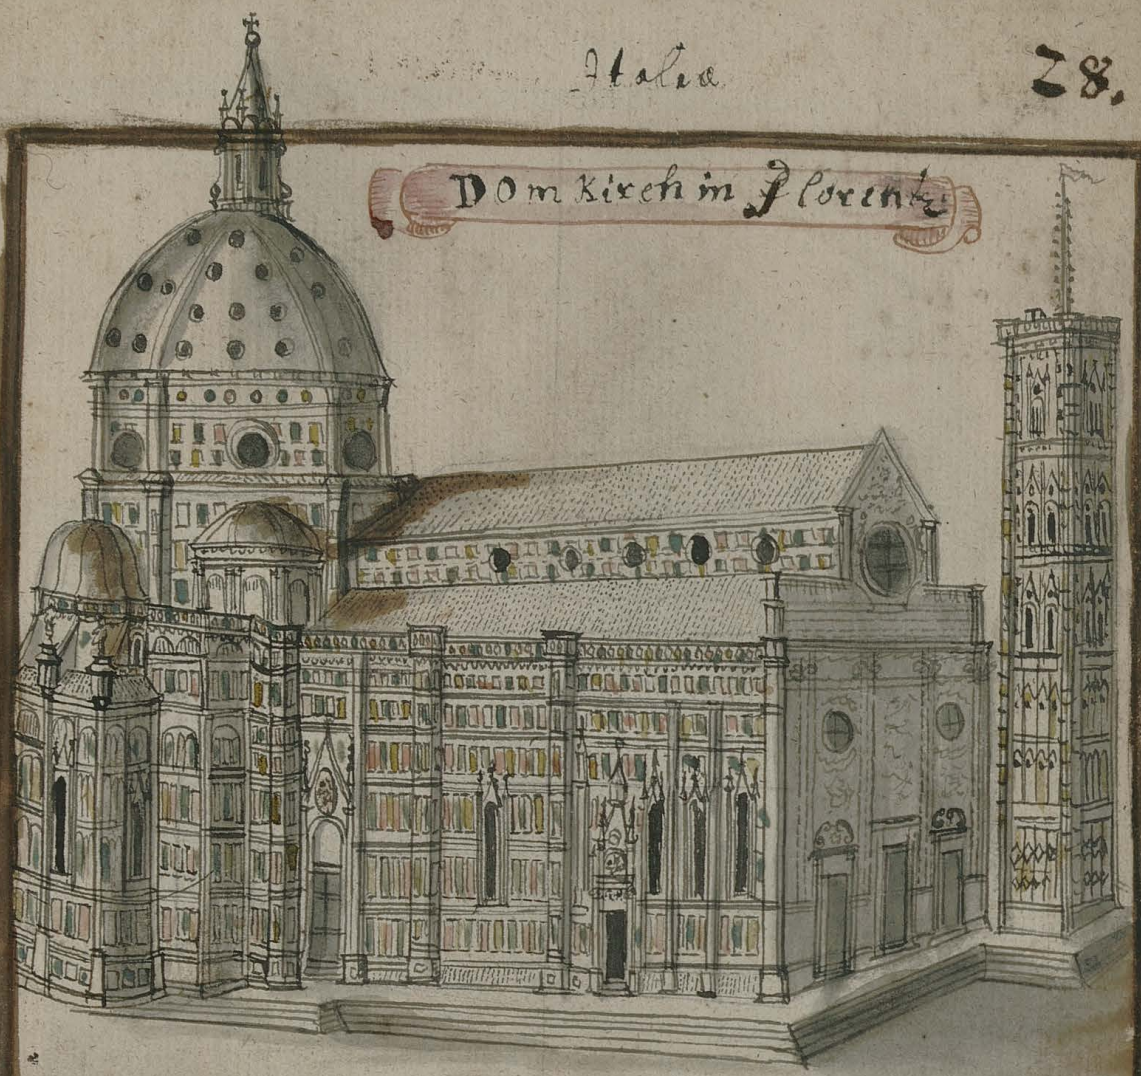 Italia
28.
Dom Kirch in Florentz